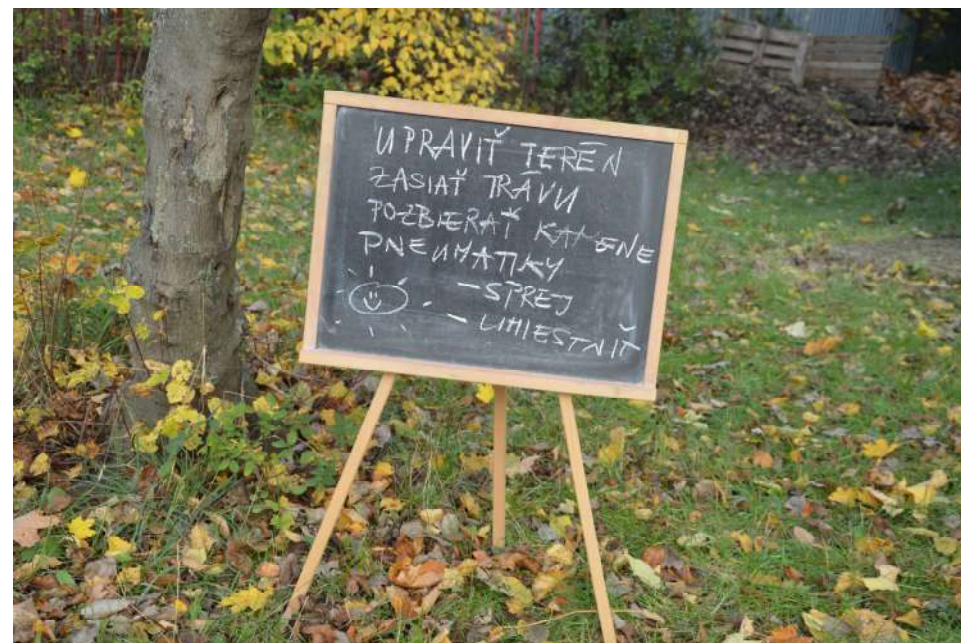 UPRAVIŤ TERÉN
ZASIAŤ TRÁVU
POZBIERAŤ KAMENE
PNEUMATIKY
- SPREJ
- UMIESTNIŤ